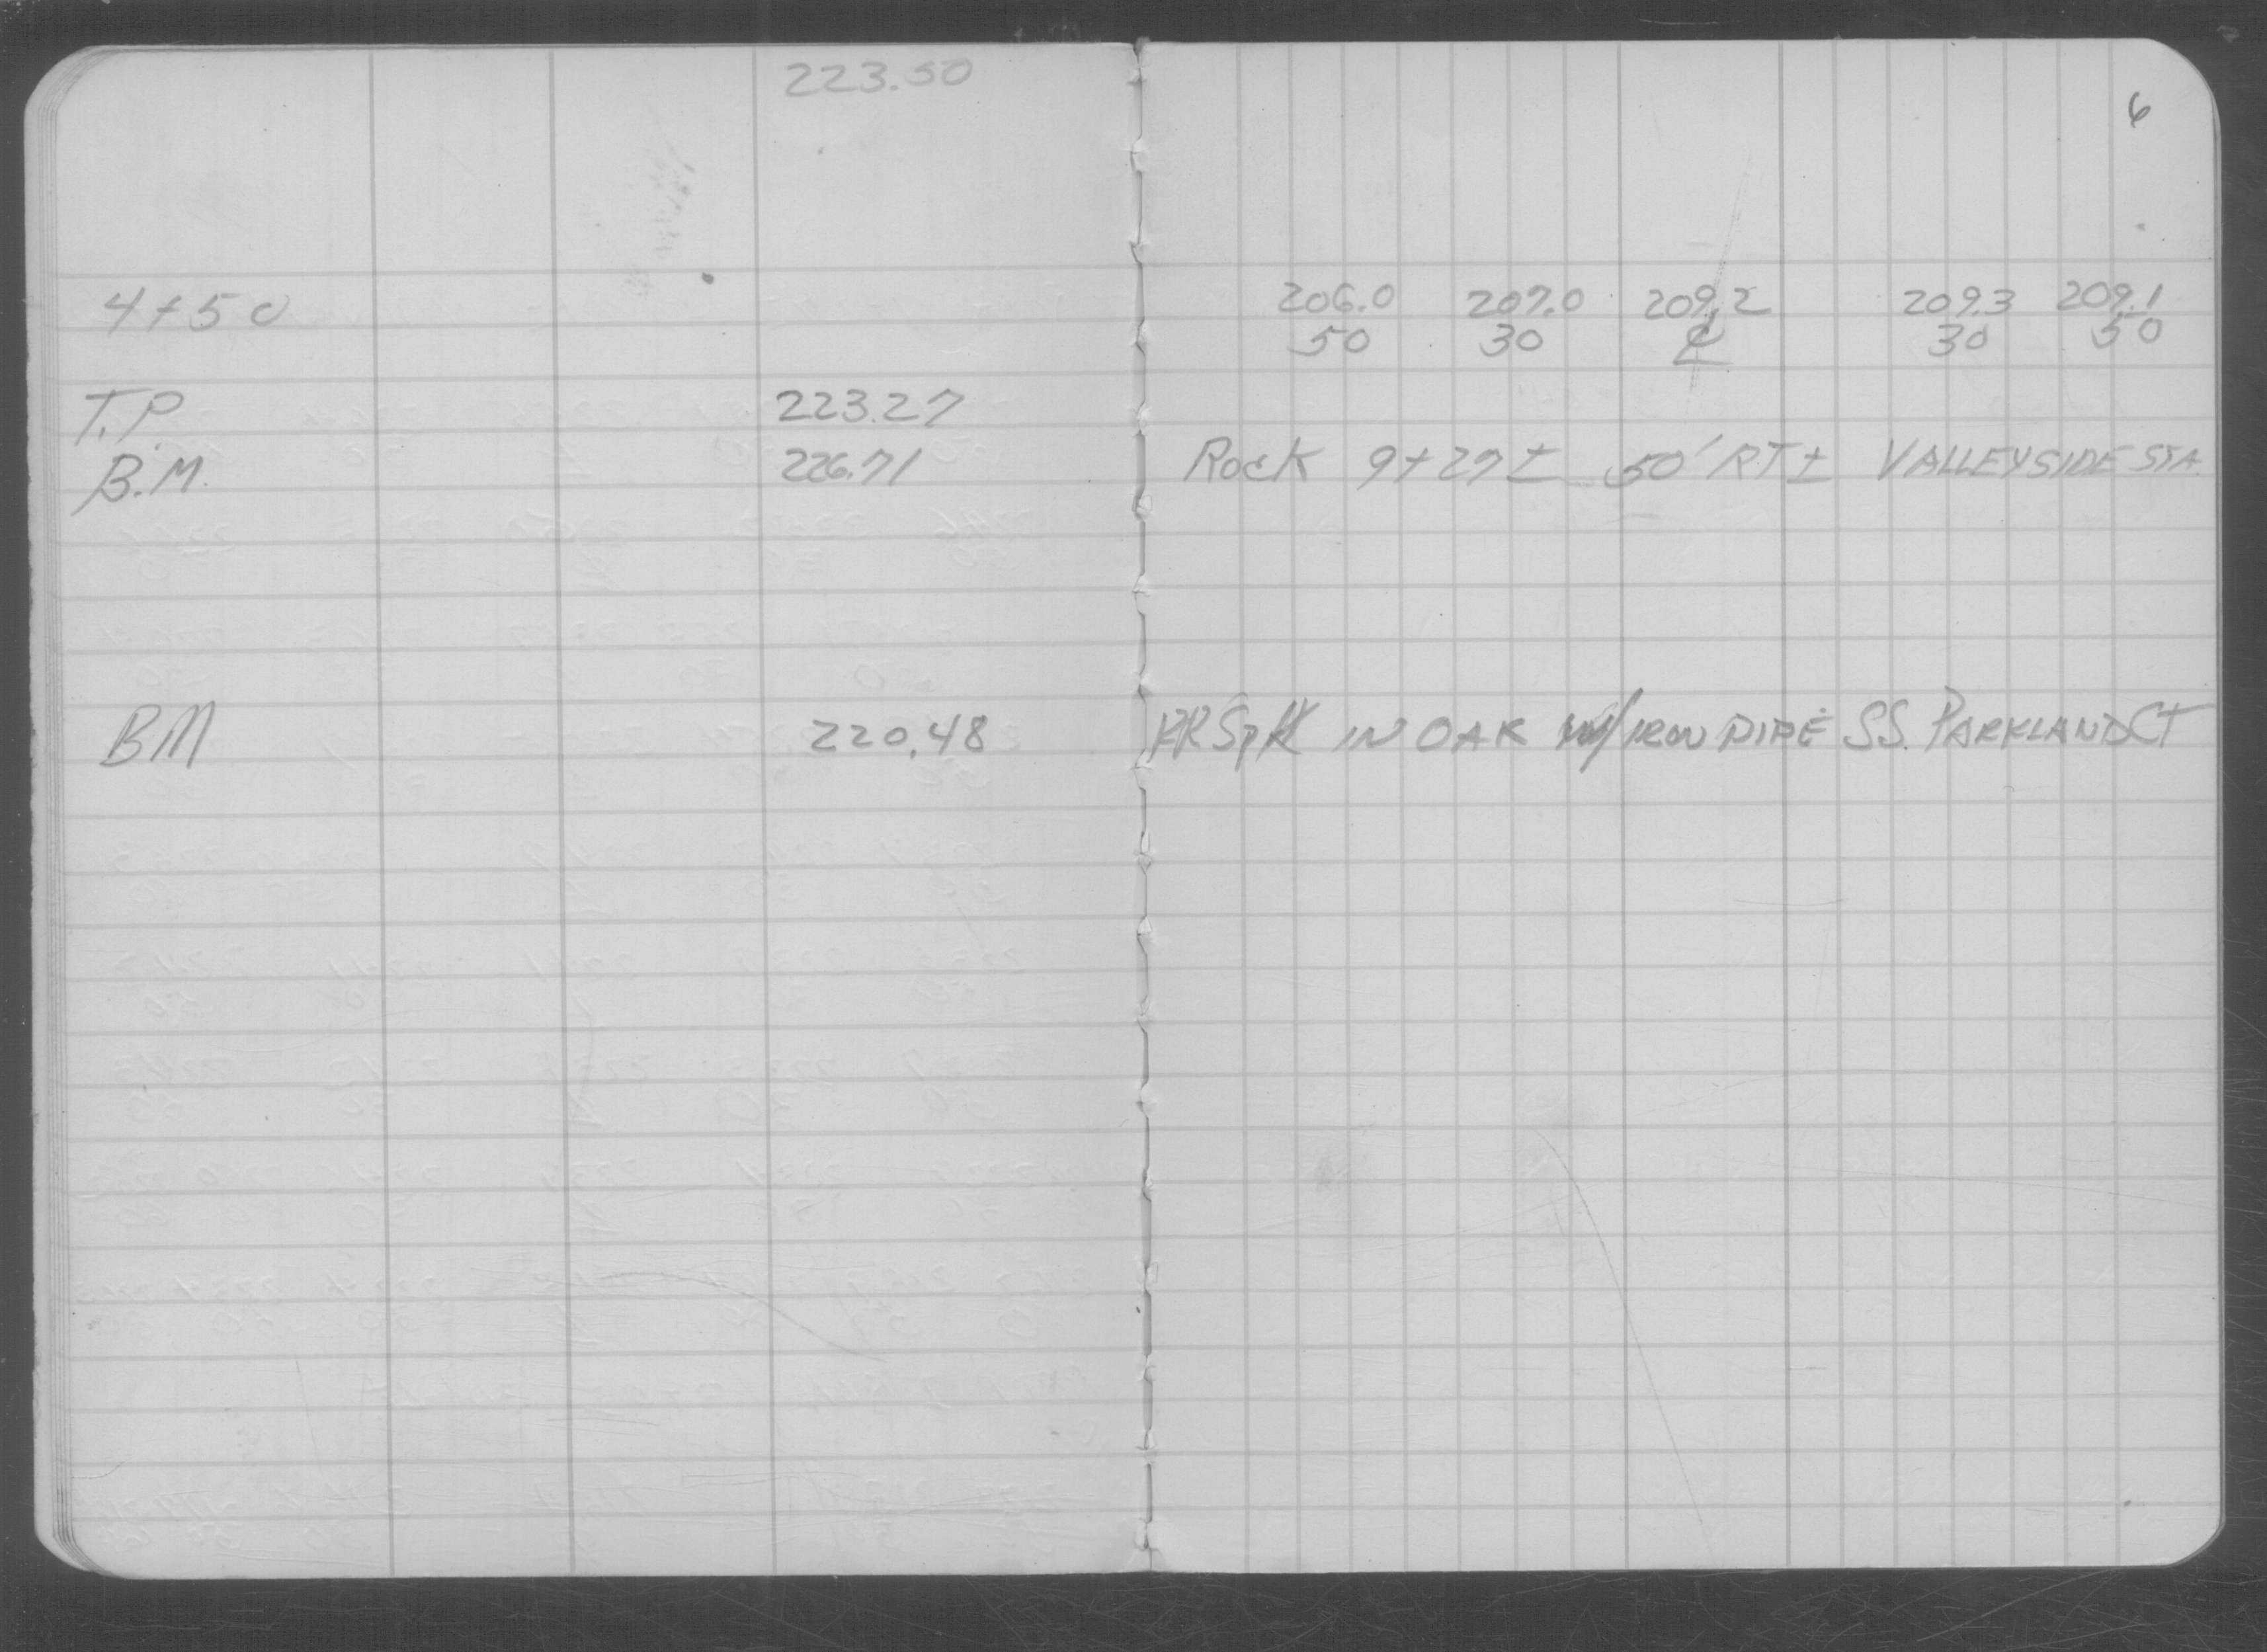 223.50
6
4+50 206.0 207.0 209.2 209.3 209.1
50 30 ℄ 30 50
T.P. 223.27
B.M. 226.71 Rock 9+27± 50' RT± VALLEYSIDE STA.
BM 220.48 RR Spk IN OAK w/ IRON PIPE SS. PARKLAND CT